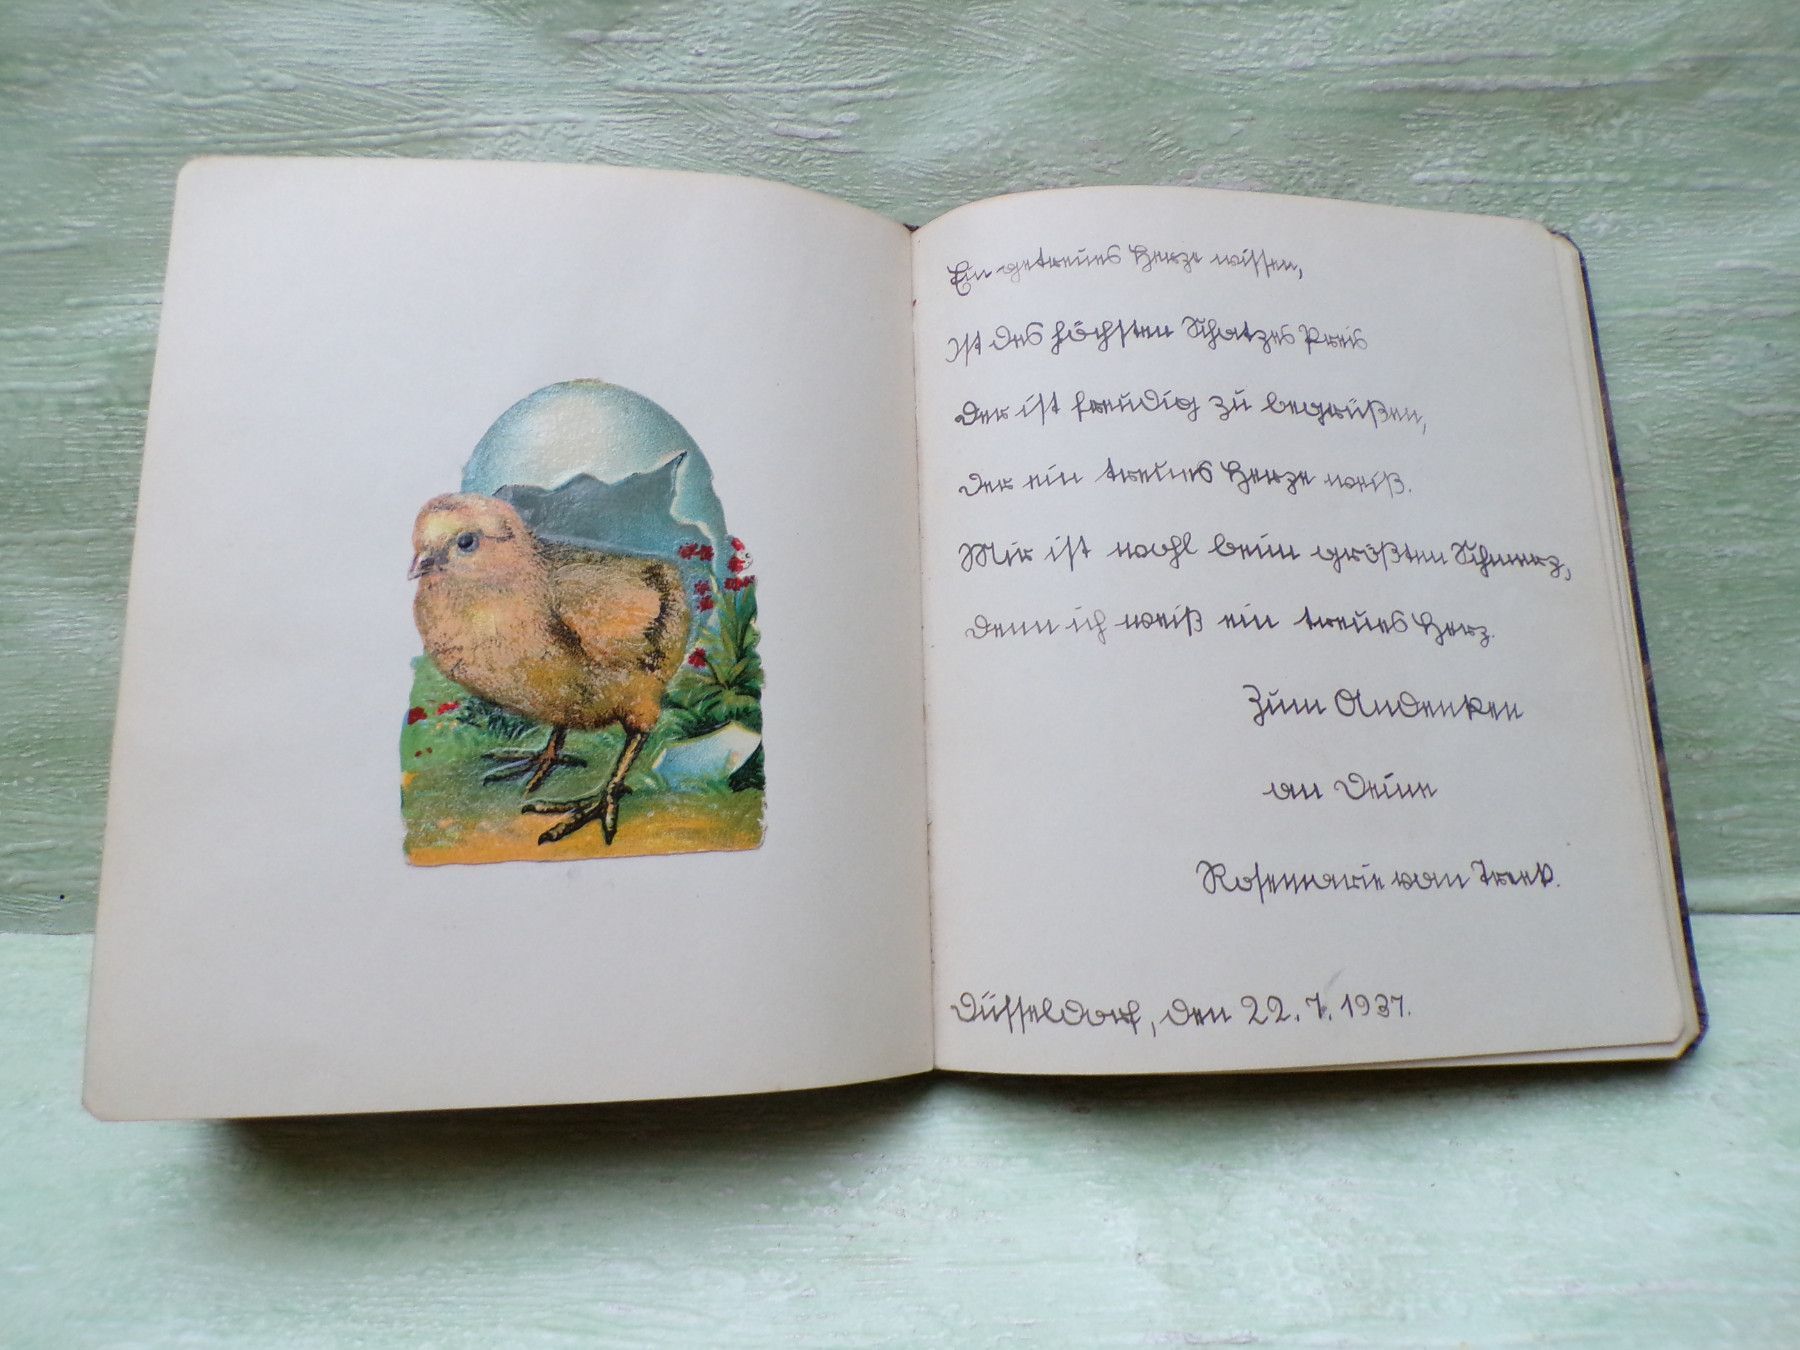 Ein getreues Herze wissen,
Ist des höchsten Schatzes Preis
Der ist freudig zu begrüßen,
Der ein treues Herze weiß.
Mir ist wohl beim größten Schmerz,
Denn ich weiß ein treues Herz.
Zum Andenken
an Deine
Rosemarie van Treek.
Düsseldorf, den 22. 7. 1937.